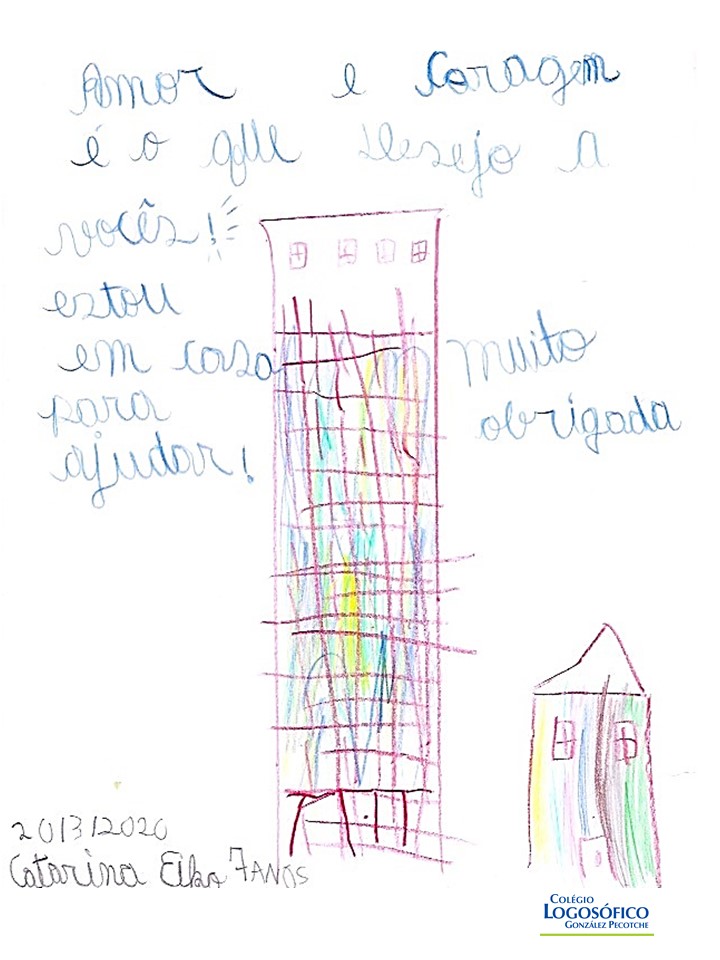 Amor e Coragem
é o que desejo a
vocês!
estou
em casa
para
ajudar!
Muito
obrigada
20/3/2020
Catarina Eiko 7 ANOS
COLÉGIO
LOGOSÓFICO
GONZÁLEZ PECOTCHE